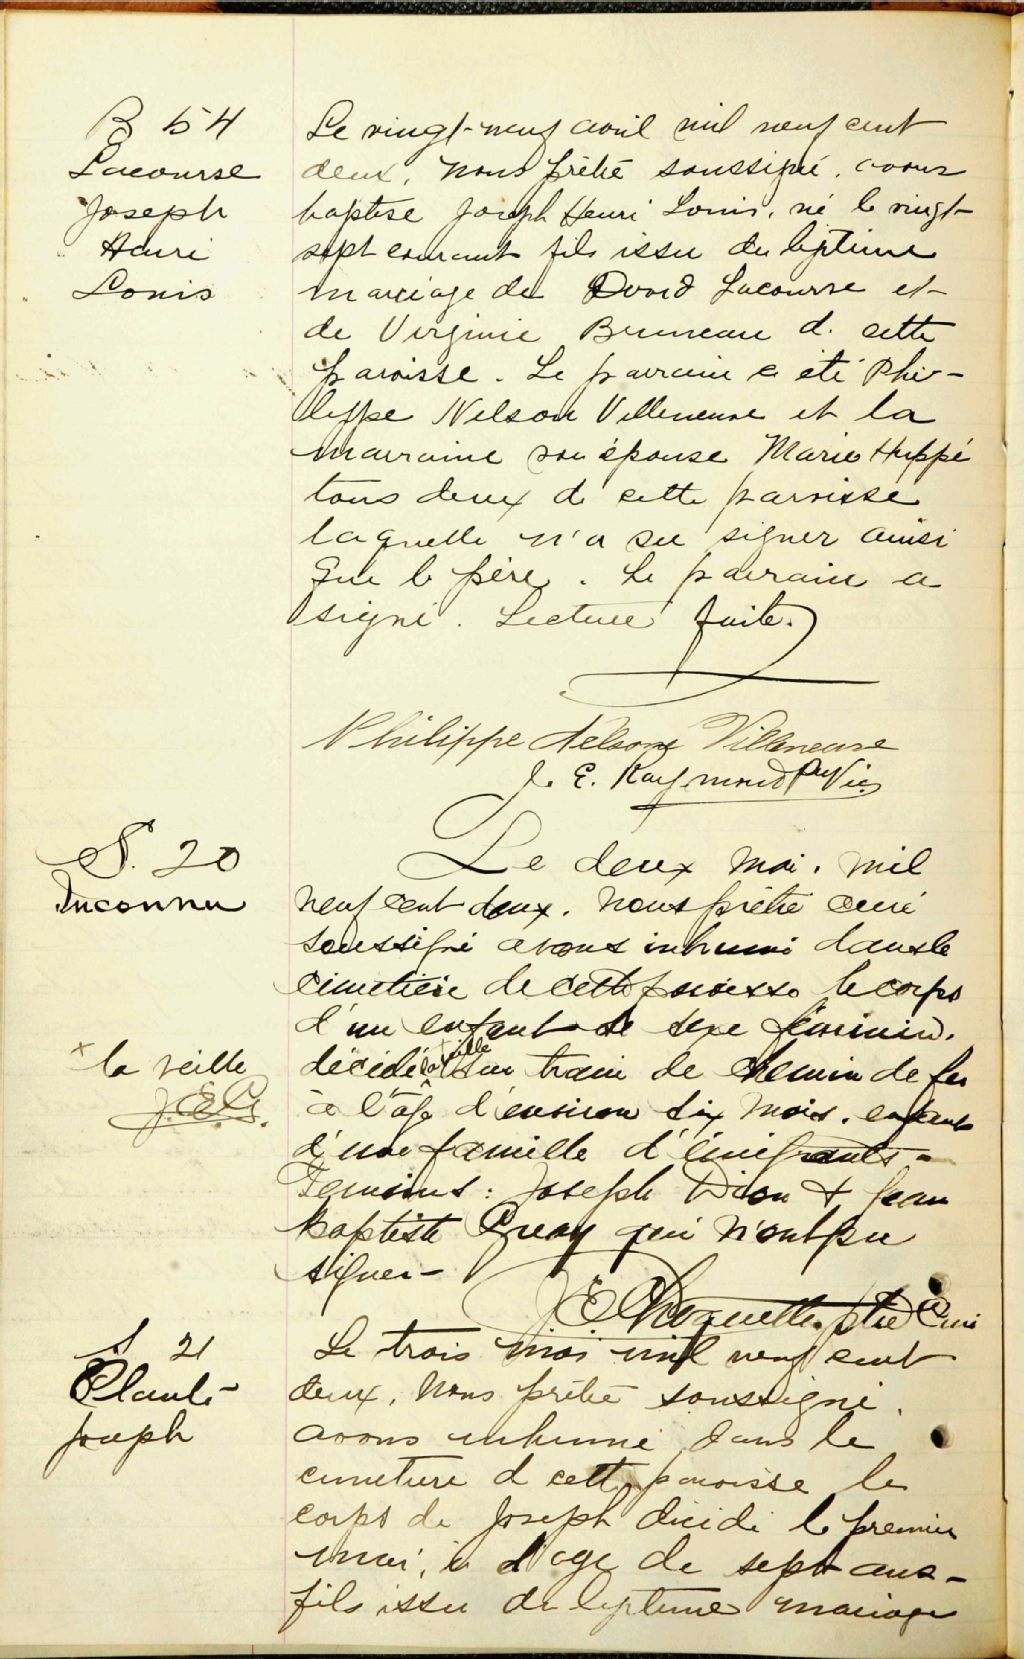 B 54
Lacourse
Joseph
Henri
Louis
Le vingt-neuf avril mil neuf cent
deux, nous prêtre soussigné, avons
baptisé Joseph Henri Louis, né le vingt-
sept courant fils issu du légitime
mariage de David Lacourse et
de Virginie Bruneau de cette
paroisse. Le parrain a été Phi-
lippe Nelson Villeneuve et la
marraine son épouse Marie Huppé
tous deux de cette paroisse
laquelle n'a su signer ainsi
que le père. Le parrain a
signé. Lecture faite.
Philippe Nelson Villeneuve
J. E. Raymond Ptre Vic.
S. 20
Inconnu
Le deux mai, mil
neuf cent deux, nous prêtre curé
soussigné avons inhumé dans le
cimetière de cette paroisse le corps
d'un enfant de sexe féminin,
décédé + la veille sur train de chemin de fer
à l'âge d'environ six mois, enfant
d'une famille d'émigrants -
Témoins : Joseph Dion & Jean
Baptiste qui n'ont pu
signer -
+ la veille
J.E.C.
J E Choquette, ptre Curé
S 21
Plante
Joseph
Le trois mai mil neuf cent
deux, nous prêtre soussigné,
avons inhumé dans le
cimetière de cette paroisse le
corps de Joseph décédé le premier
mai, à l'age de sept ans -
fils issu du légitime mariage